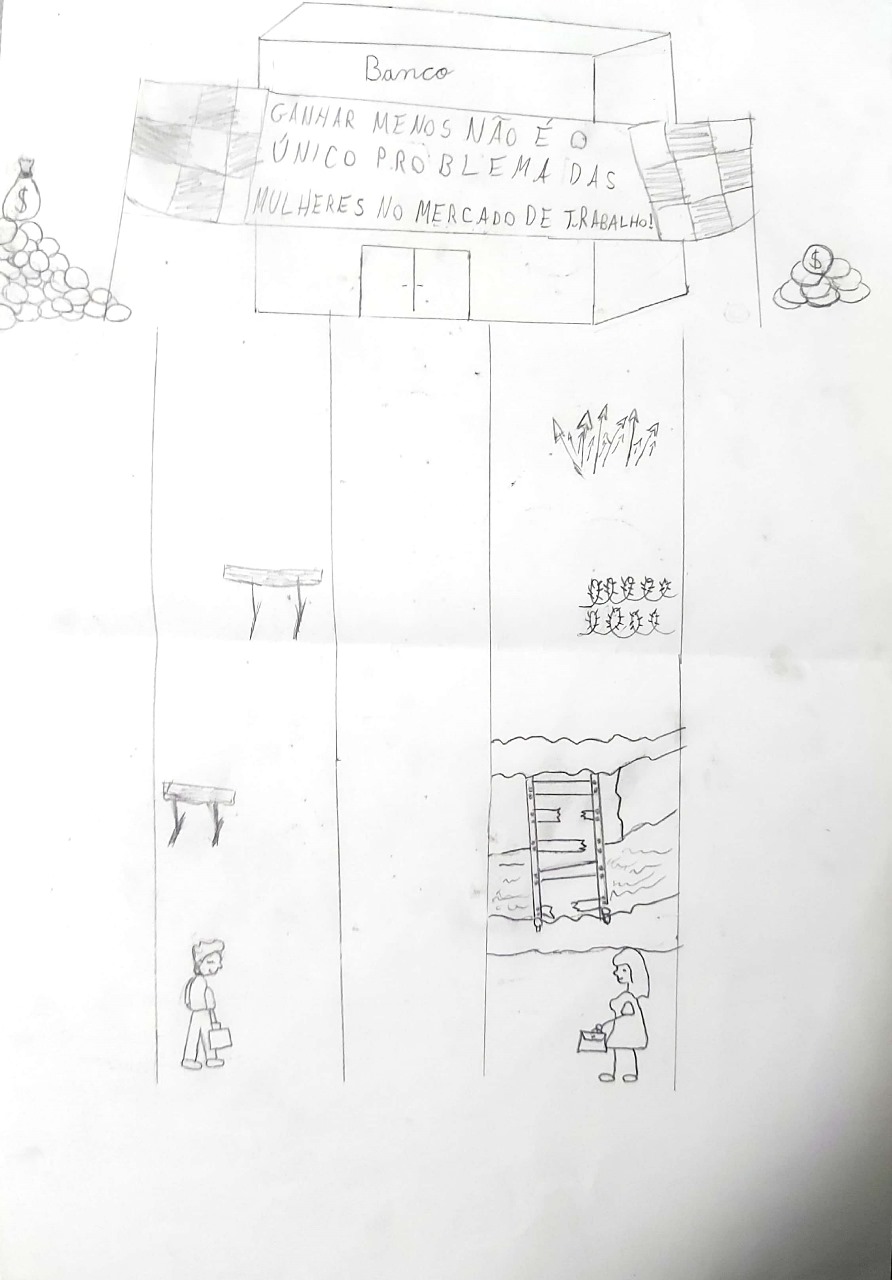 Banco
GANHAR MENOS NÃO É O
ÚNICO PROBLEMA DAS
MULHERES NO MERCADO DE TRABALHO!
$
$